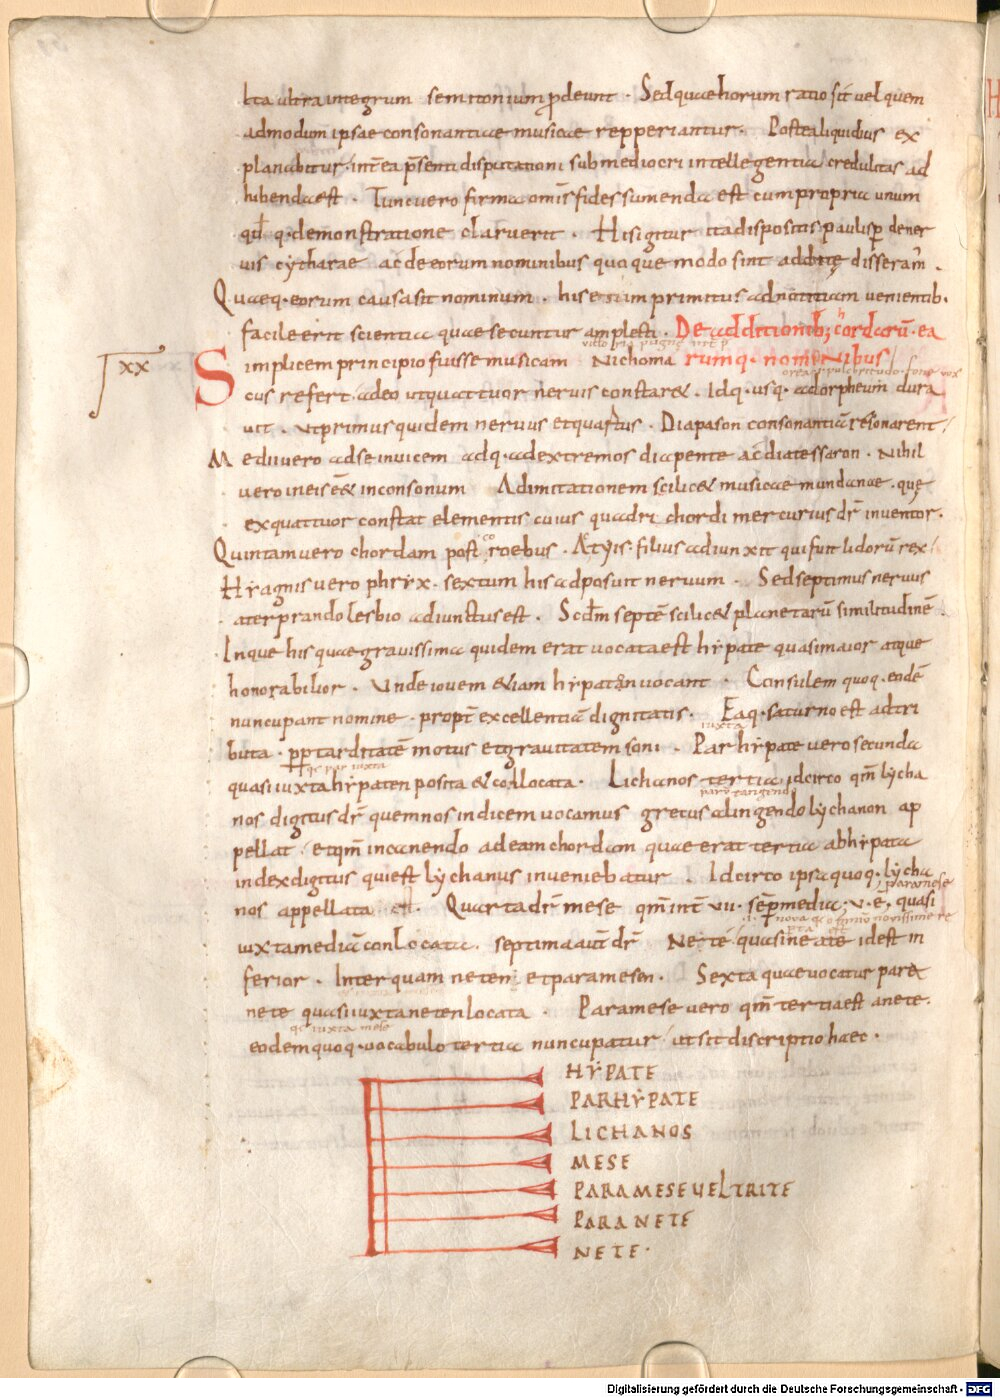 lta ultra integrum semitonium prodeunt · Sed quae horum ratio sit uel quem
admodum ipsae consonantiae musicae repperiantur · Postea liquidius ex
planabitur · int ea psenti disputationi sub mediocri intellegentia credulitas ad
hibenda est · Tunc uero firma omis fides sumenda est cum propria unum
qd q · demonstratione claruerit · His igitur ita dispositis paulisp de ner
uis cytharae ac de eorum nominibus quo que modo sint addite disseram ·
Quaeq · eorum causa sit nominum · his etiam primitus ad notitiam uenientib ·
facile erit scientia quae secuntur amplecti · De additionib; chordarū · ea
XX Simplicem principio fuisse musicam Nichoma rumq · nominibus
cus refert · adeo ut quattuor neruis constar& · Idq · usq · ad orpheum dura
uit · ut primus quidem neruus et quartus · Diapason consonantiā resonarent /
Medii uero ad se inuicem adq · ad extremos diapente ac diatessaron · Nihil
uero in eis ēē inconsonum Ad imitationem scilic& musicae mundanae · quę
ex quattuor constat elementis cuius quadri chordi mercurius dr inuentor ·
Quintam uero chordam post coroebus · Atyis · filius adiunxit qui fuit lidorū rex /
Hyagnis uero phryx · sextum his adposuit neruum · Sed septimus neruus
a terprando lesbio adiunctus est · Scdm septē scilic& planetarū similitudinē ·
Inque his quae grauissima quidem erat uocata est hypate quasi maior atque
honorabilior · Unde iouem &iam hypaton uocant · Consulem quoq · eodē
nuncupant nomine · propt excellentiā dignitatis · Eaq · saturno est adtri
buta · pp tarditatē motus et grauitatem soni · Parhypate uero secunda
quasi iuxta hypaten posita & conlocata · Lichanos tertia idcirco qm lycha
nos digitus dr quem nos indicem uocamus grecus a lingendo lychanon ap
pellat · et qm in canendo ad eam chordam quae erat tertia ab hypata
index digitus qui est lychanus inueniebatur · Idcirco ipsa quoq · lycha
nos appellata est · Quarta dr mese qm int uii · semp media · u · ē · quasi
iuxta mediā conlocata · septima aut dr Nete quasi neate id est in
ferior · Inter quam neten · et paramesen · Sexta quae uocatur para
nete quasi iuxta neten locata · Paramese uero qm tertia est a nete ·
eodem quoq · uocabulo tertia nuncupatur / ut sit discriptio haec ·
HYPATE
PARHYPATE
LICHANOS
MESE
PARAMESE UEL TRITE
PARANETE
NETE ·
Digitalisierung gefördert durch die Deutsche Forschungsgemeinschaft - DFG